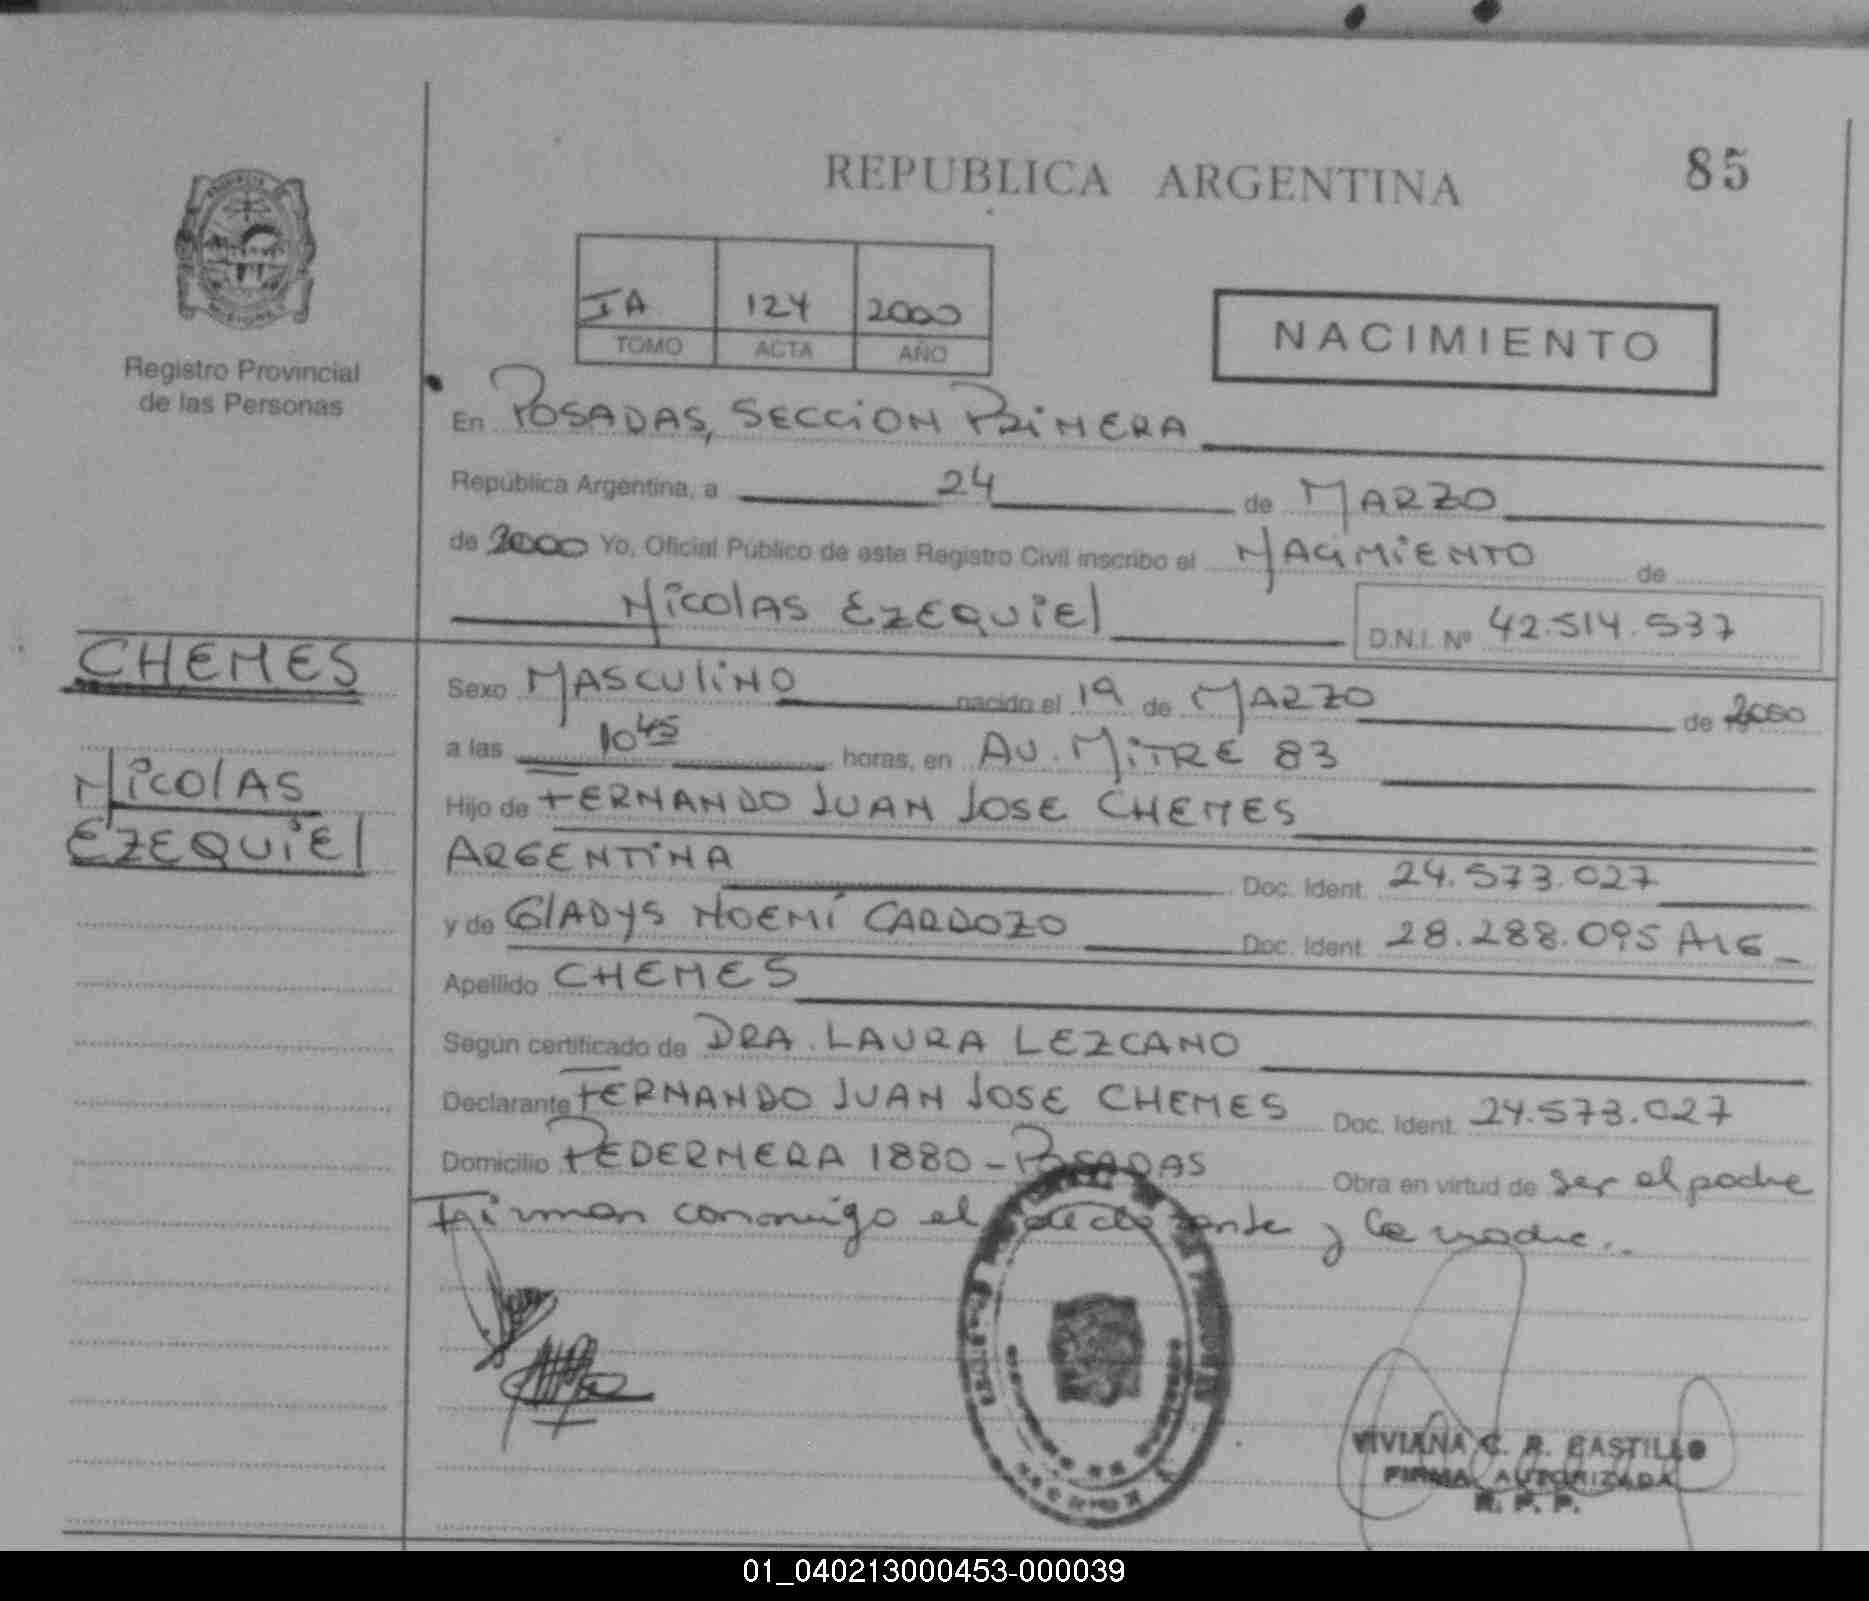 85
REPUBLICA ARGENTINA
IA 124 2000
TOMO ACTA AÑO
NACIMIENTO
Registro Provincial
de las Personas
En POSADAS, SECCION PRIMERA
República Argentina, a 24 de MARZO
de 2000 Yo, Oficial Público de este Registro Civil inscribo el NACIMIENTO de
NICOLAS EZEQUIEL D.N.I. Nº 42.514.537
CHEMES
Sexo MASCULINO nacido el 19 de MARZO de 2000
a las 10 45 horas, en AV. MITRE 83
NICOLAS
EZEQUIEL
Hijo de FERNANDO JUAN JOSE CHEMES
ARGENTINA Doc. Ident. 24.573.027
y de GLADYS NOEMÍ CARDOZO Doc. Ident. 28.288.095 ARG
Apellido CHEMES
Según certificado de DRA. LAURA LEZCANO
Declarante FERNANDO JUAN JOSE CHEMES Doc. Ident. 24.573.027
Domicilio PEDERNERA 1880 - POSADAS Obra en virtud de ser el padre
Firman conmigo el declarante y la madre..
VIVIANA C. R. CASTILLO
FIRMA AUTORIZADA
R. P. P.
01_040213000453-000039